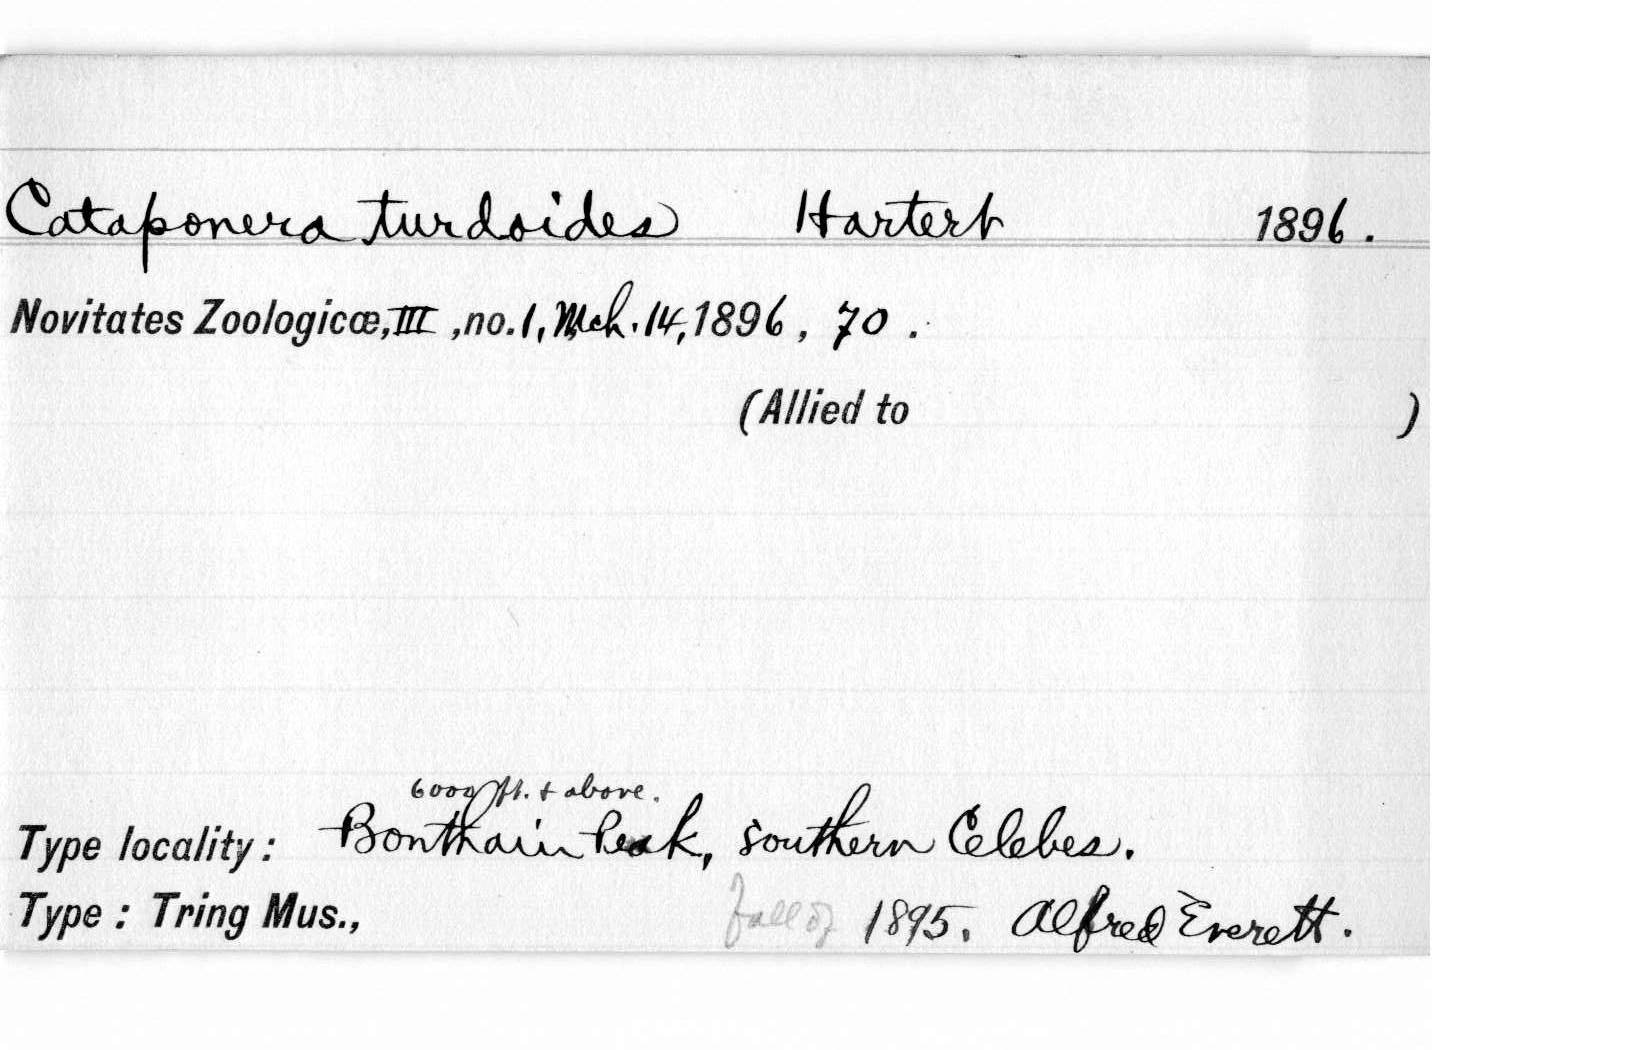 Cataponera turdoides Hartert 1896.
Novitates Zoologicæ, III, no. 1, Mch. 14, 1896, 70.
(Allied to )
6000 ft. & above.
Type locality: Bonthain Peak, southern Celebes.
Type: Tring Mus., Fall of 1895. Alfred Everett.